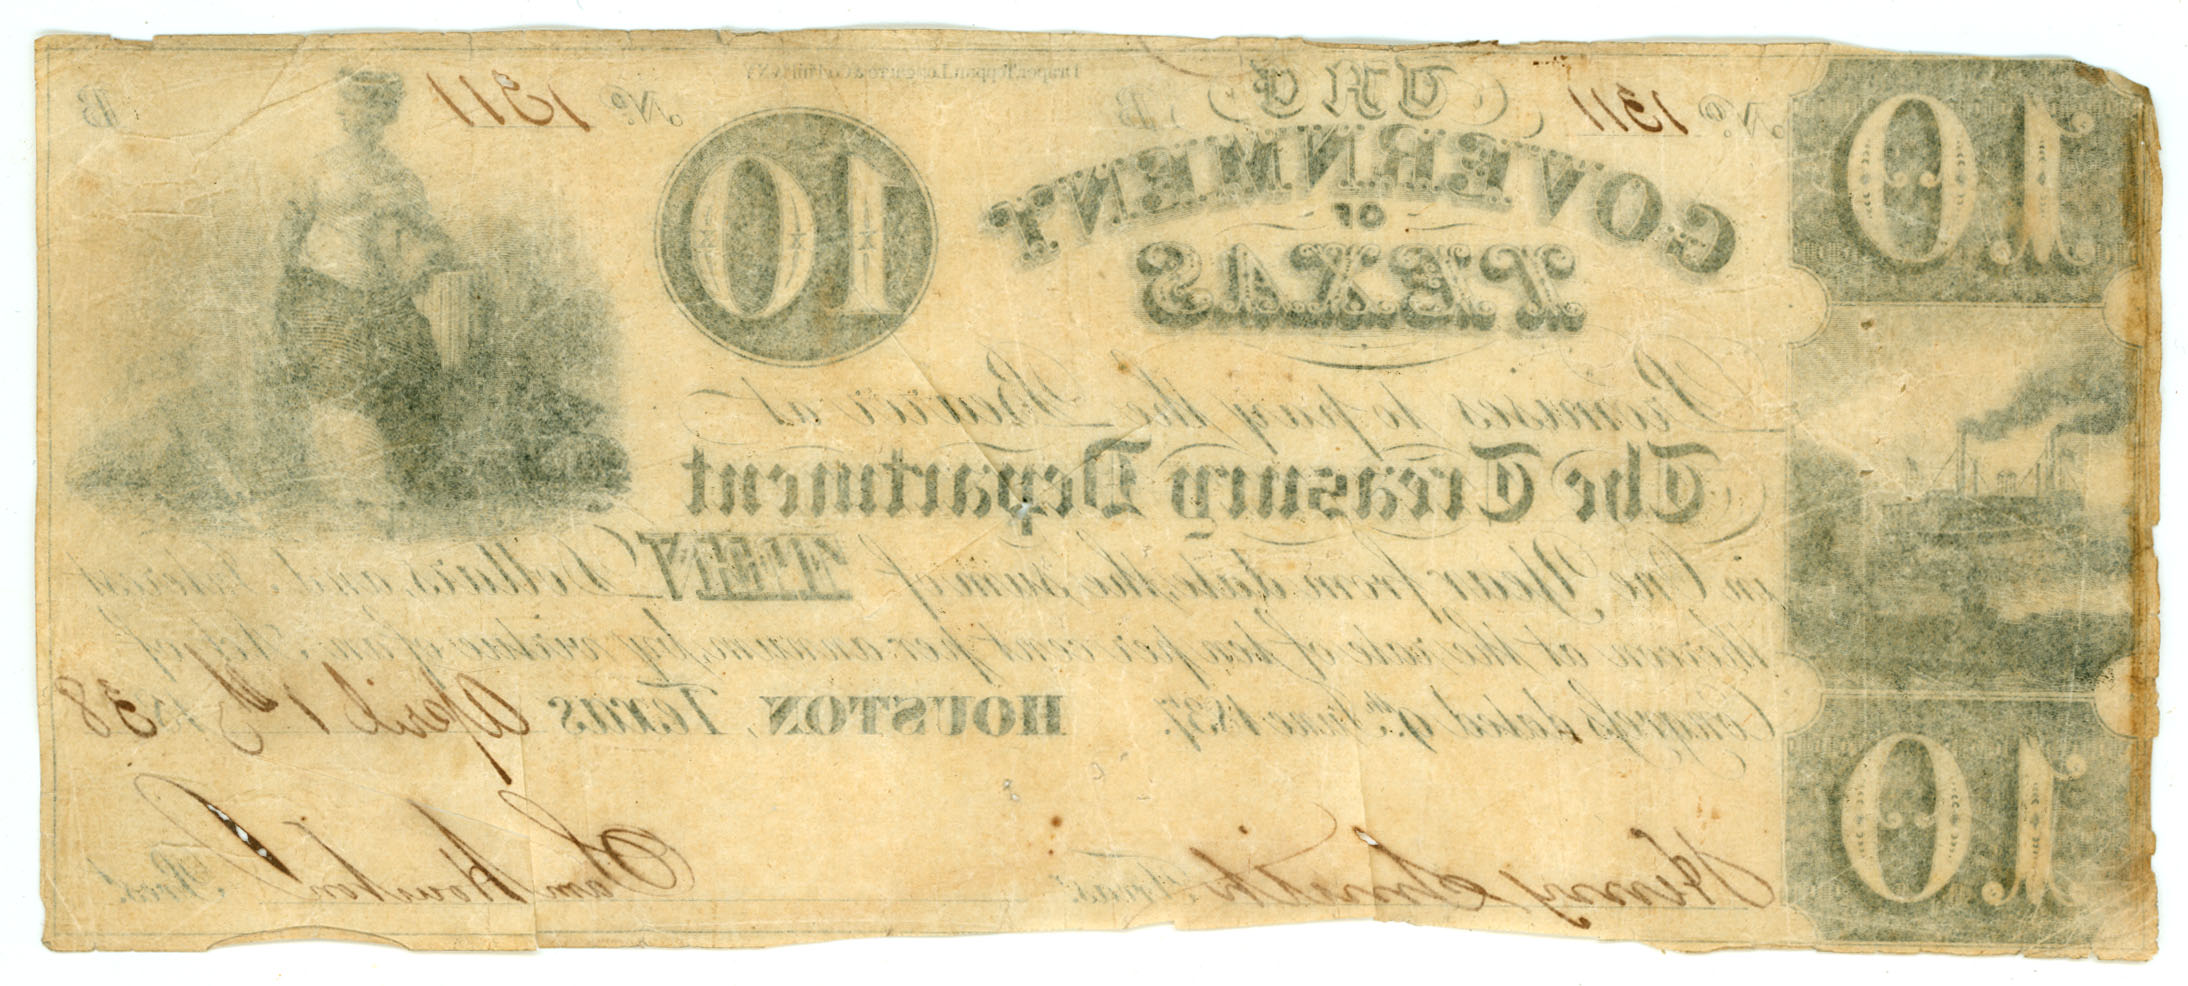 10
No. 1311
THE
B
Draper, Toppan, Longacre & Co. Phil. & N.Y.
No. 1311
B
GOVERNMENT
OF
TEXAS
10
Promises to pay the Bearer at
The Treasury Department
in One Year from date, the sum of TEN Dollars, and Interest
thereon at the rate of ten per cent per annum, by virtue of an Act of
Congress dated 9th June 1837.
HOUSTON, Texas April 1st 1838
Henry Smith Treas.r
Sam Houston Pres.t
10